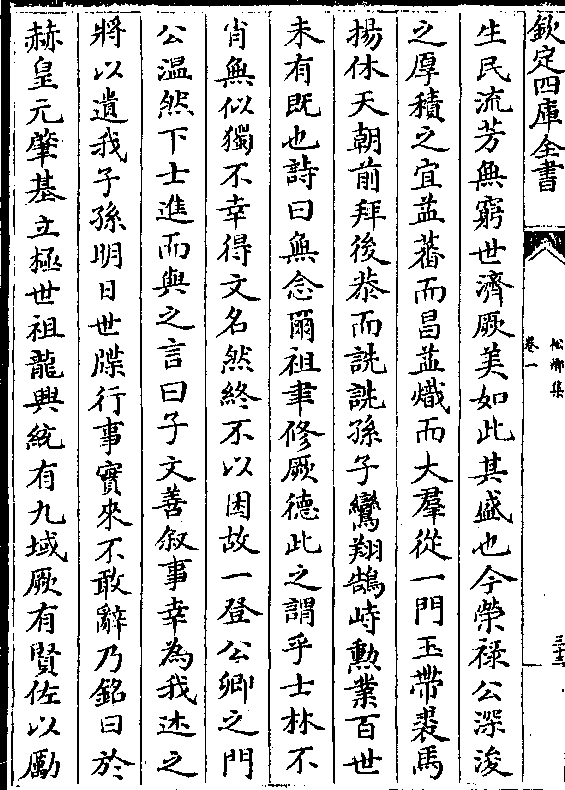 欽定四庫全書
松鄉集
卷一
三十三
生民流芳無窮世濟厥美如此其盛也今榮祿公深浚
之厚積之宜益蕃而昌益熾而大羣從一門玉帶裘馬
揚休天朝前拜後恭而詵詵孫子鸞翔鵠峙勲業百世
未有既也詩曰無念爾祖聿修厥德此之謂乎士林不
肖無似獨不幸得文名然終不以困故一登公卿之門
公温然下士進而與之言曰子文善叙事幸為我述之
將以遺我子孫明日世牒行事實來不敢辭乃銘曰於
赫皇元肇基立極世祖龍興統有九域厥有賢佐以勵